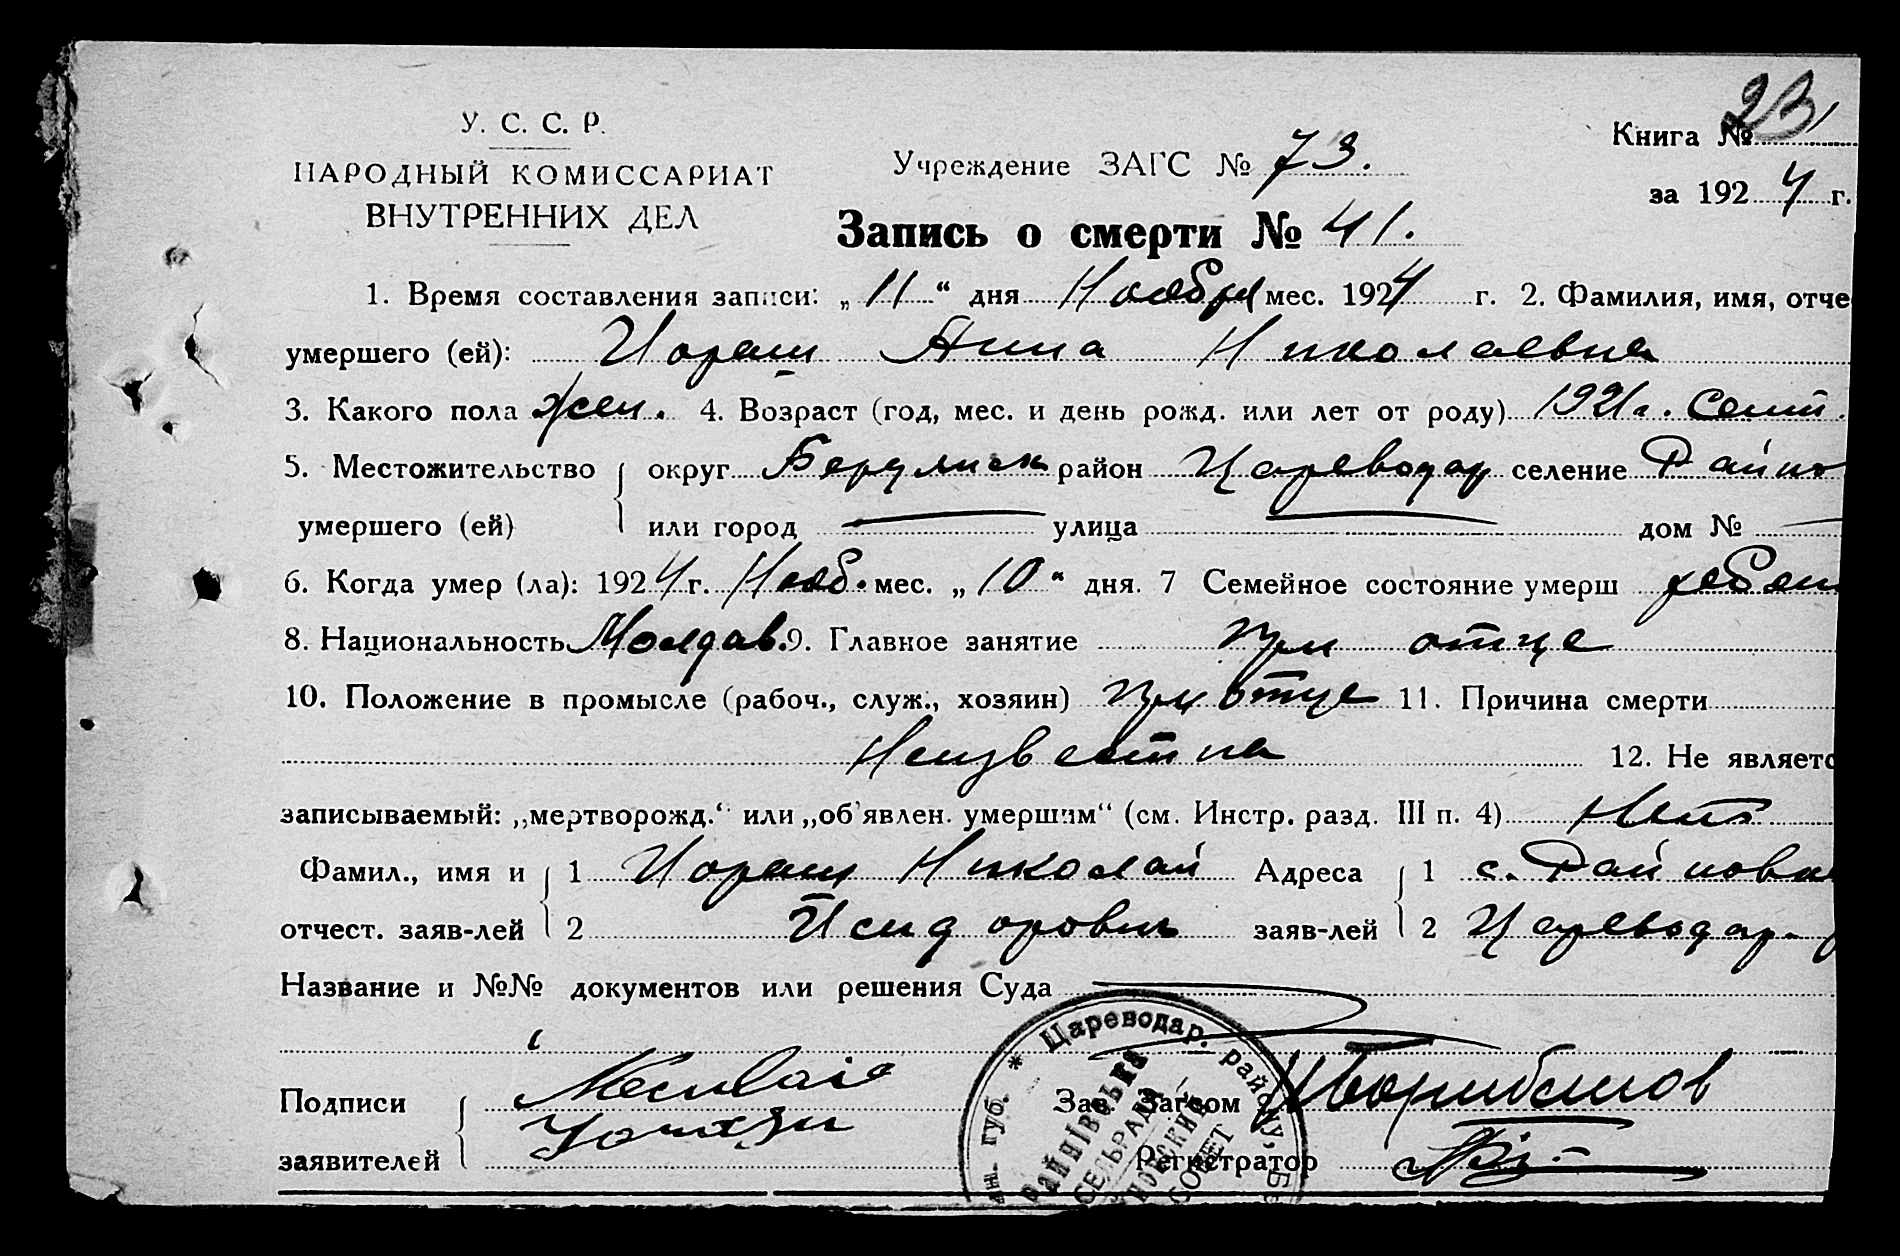 23
У. С. С. Р.
Книга №
НАРОДНЫЙ КОМИССАРИАТ
Учреждение ЗАГС № 73.
за 1924 г.
ВНУТРЕННИХ ДЕЛ
Запись о смерти № 41.
1. Время составления записи: „11“ дня Ноября мес. 1924 г. 2. Фамилия, имя, отче
умершего (ей): Иораш Анна Николаевна
3. Какого пола жен. 4. Возраст (год, мес. и день рожд. или лет от роду) 1921г. Сент.
5. Местожительство { округ Бердянск район Цареводар селение Райно
умершего (ей) или город — улица — дом № —
6. Когда умер (ла): 1924 г. Нояб. мес. „10“ дня. 7 Семейное состояние умерш ребен
8. Национальность Молдав. 9. Главное занятие при отце
10. Положение в промысле (рабоч., служ., хозяин) при отце 11. Причина смерти
Неизвестна 12. Не являетс
записываемый: „мертворожд.“ или „об'явлен. умершим“ (см. Инстр. разд. III п. 4) Нет
Фамил., имя и { 1 Иораш Николай Адреса { 1 с. Райновка
отчест. заяв-лей 2 Исидорович заяв-лей 2 Цареводар. р
Название и №№ документов или решения Суда
Подписи {
заявителей
Зав Загсом
Регистратор
губ. * Цареводар. району, Бе
РАЙНІВСЬКА
СЕЛЬРАДА
СОВЕТ